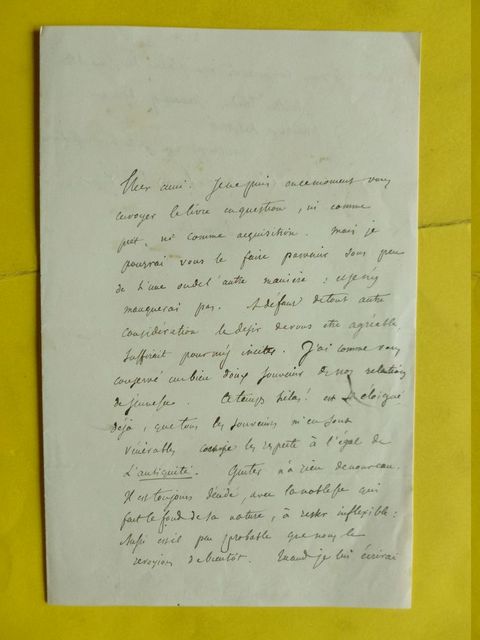 Cher ami. Je ne puis en ce moment vous
envoyer le livre en question, ni comme
prêt, ni comme acquisition. Mais je
pourrai vous le faire parvenir sous peu
de l'une ou de l'autre manière : et je n'y
manquerai pas. A défaut de tout autre
considération le désir de vous être agréable
suffirait pour m'y inciter. J'ai comme vous
conservé un bien doux souvenir de nos relations
de jeunesse. Ce temps hélas! est si éloigné
déjà, que tous les souvenirs m'en sont
vénérables les respecte à l'égal de
L'antiquité. n'a rien de nouveau.
Il est toujours décidé, avec la noblesse qui
fait le fond de sa nature, à rester inflexible :
Aussi est il peu probable que nous le
revoyions de bientôt. Quand je lui écrirai